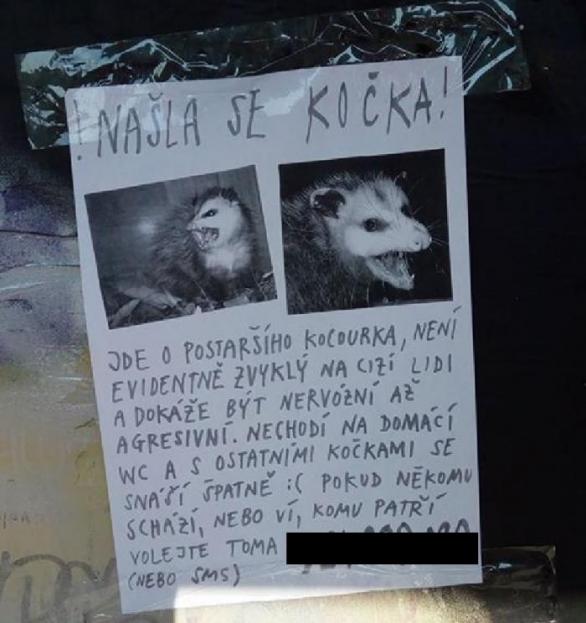 ! NAŠLA SE KOČKA!
JDE O POSTARŠÍHO KOCOURKA, NENÍ
EVIDENTNĚ ZVYKLÝ NA CIZÍ LIDI
A DOKÁŽE BÝT NERVÓZNÍ AŽ
AGRESIVNÍ. NECHODÍ NA DOMÁCÍ
WC A S OSTATNÍMI KOČKAMI SE
SNÁŠÍ ŠPATNĚ :( POKUD NĚKOMU
SCHÁZÍ, NEBO VÍ, KOMU PATŘÍ
VOLEJTE TOMA
(NEBO SMS)